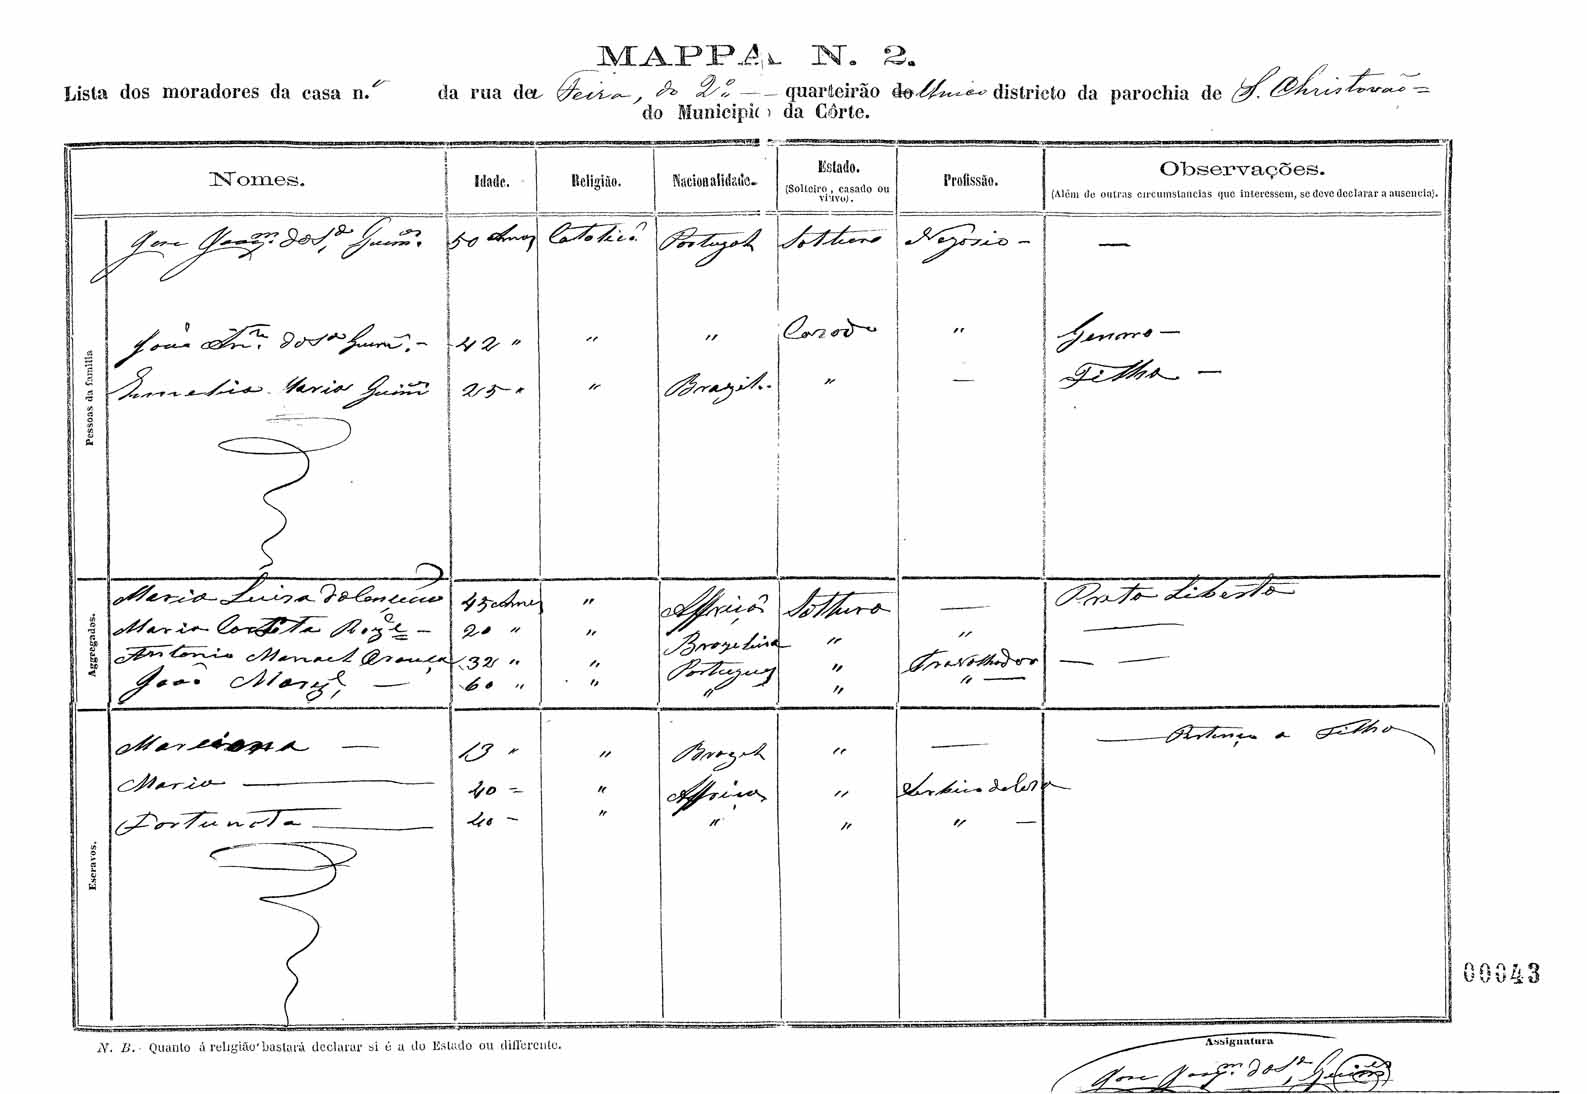 MAPPA N. 2.
Lista dos moradores da casa n.º da rua da Feira, do 2º quarteirão do Unico districto da parochia de S. Christovão
do Municipio da Côrte.
Nomes. Idade. Religião. Nacionalidade. Estado. (Solteiro, casado ou viuvo). Profissão. Observações. (Além de outras circumstancias que interessem, se deve declarar a ausencia).
Pessoas da familia
Jose Joaqm. da Sa. Guims. 50 Annos Catolico Portugal Solteiro Negosio —
João Anto. da Sa Guim. — 42 " " " Casado " Genrro —
Emelia Maria Guims 25 " " Brazil. " — Filha —
Aggregados.
Maria Luiza da Conceicão 45 Annos " Affrica Solteira — Preta Liberta
Maria — 20 " " Brazileira " " —
Antonio Manoel 32 " " Portuguez " Travalhador — —
João — 60 " " " " " —
Escravos.
Marciana — 13 " " Brazil " — — Pertence a Filha
Maria — 40 = " Affrica " Serviso de Casa
Fortunata — 40 - " " " " —
00043
N. B. - Quanto á religião bastará declarar si é a do Estado ou differente.
Assignatura
Jose Joaqm. da Sa. Guims